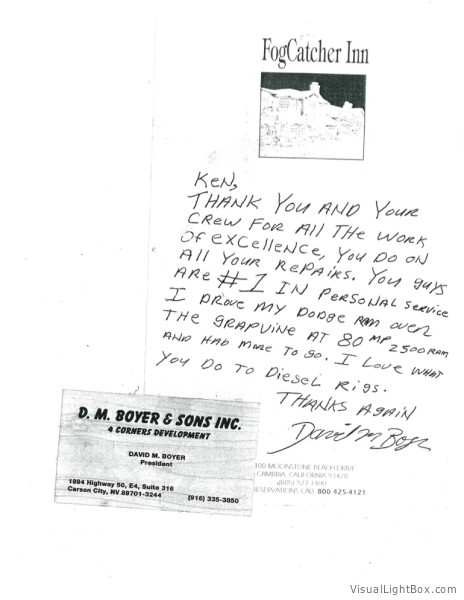 FogCatcher Inn
KEN,
THANK YOU AND YOUR
CREW FOR All THE WORK
Of EXCEllENCE, YOU DO ON
All YOUR REPAIRS. YOU GUYS
ARE #1 IN PERSONAL SERVICE
I DROVE MY DODGE RAM OVER
THE GRAPUINE AT 80 MP 2500 RAM
AND HAD MORE TO GO. I LOVE WHAT
YOU DO TO DIESEL RIGS.
THANKS AGAIN
David M Boyer
D. M. BOYER & SONS INC.
4 CORNERS DEVELOPMENT
DAVID M. BOYER
President
1894 Highway 50, E4, Suite 316
Carson City, NV 89701-3244 (916) 335-3850
400 MOONSTONE BEACH DRIVE
CAMBRIA, CALIFORNIA 93428
(805) 927-1400
RESERVATIONS CALL 800 425-4121
VisualLightBox.com